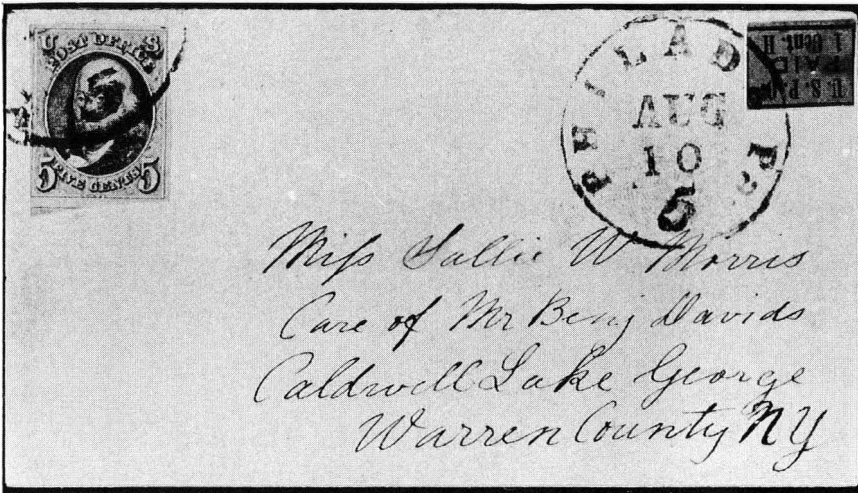 U S
POST OFFICE
5 FIVE CENTS 5
PHILADA Pa
AUG
10
5
U.S.P.O.
PAID
1 Cent. H
Miſs Sallie W Morris
Care of Mr Benj Davids
Caldwell Lake George
Warren County NY